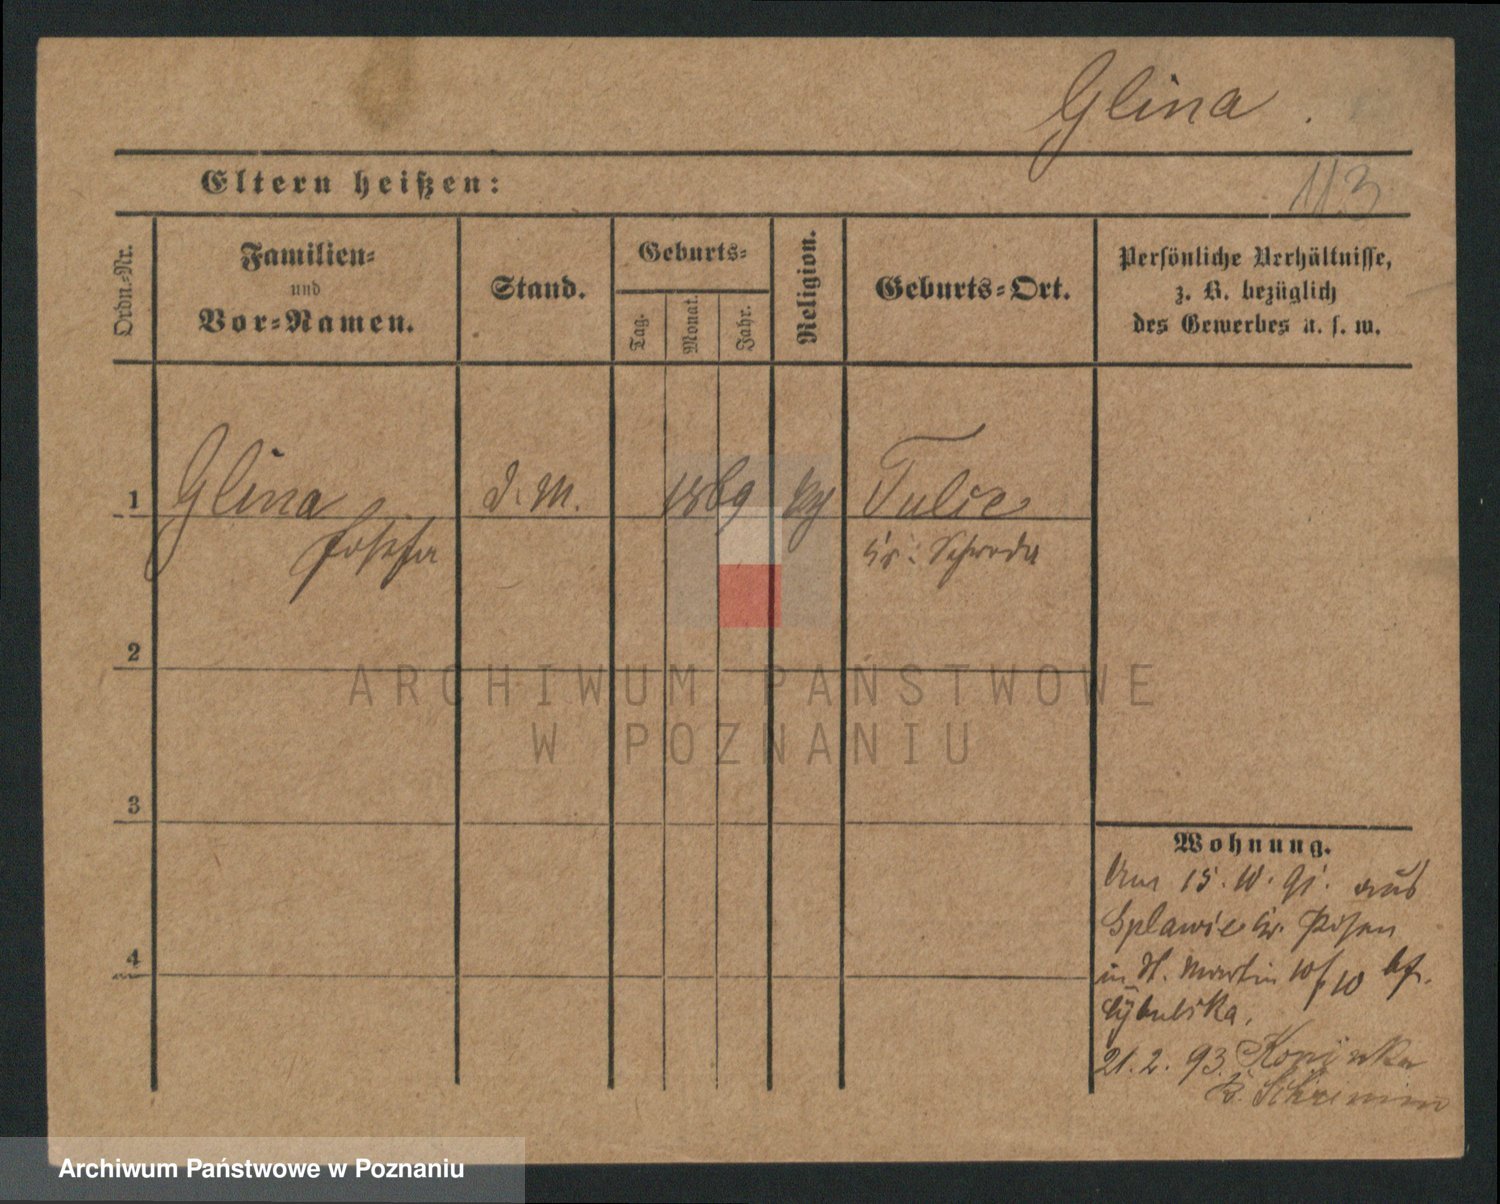 Glina.
113
Eltern heißen:
Ordn.-Nr.
Familien-
und
Vor-Namen.
Stand.
Geburts-
Tag.
Monat.
Jahr.
Religion.
Geburts-Ort.
Persönliche Verhältnisse,
z. B. bezüglich
des Gewerbes u. s. w.
1
Glina
Josefa
d. M.
1869
Tulce
Kr. Schroda
2
ARCHIWUM PAŃSTWOWE
W POZNANIU
3
4
Wohnung.
15. 10. 91. aus
Splawie Kr. Posen
in St. Martin 10
Cybulska.
21. 2. 93.
K. Schrimm
Archiwum Państwowe w Poznaniu